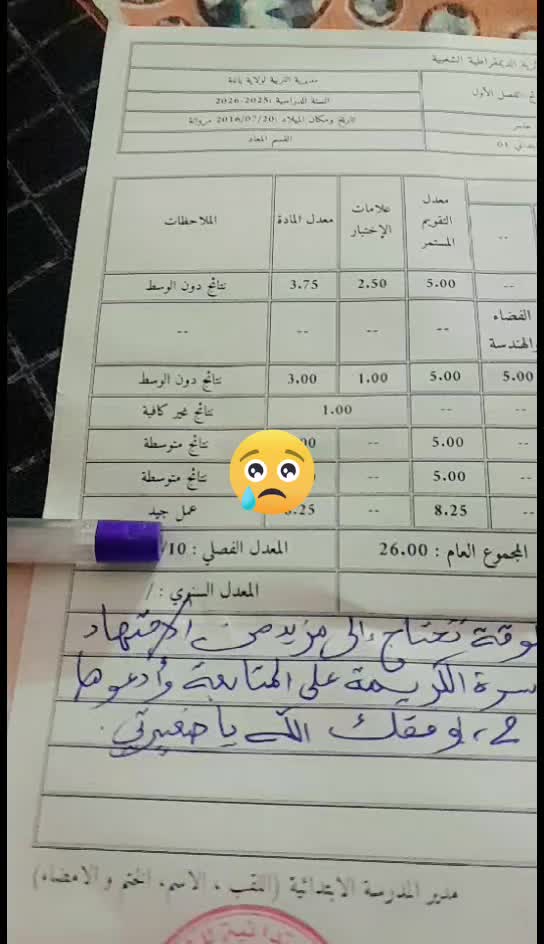 الديمقراطية الشعبية
مديرية التربية لولاية باتنة
الفصل الأول
السنة الدراسية :2025-2026
تاريخ ومكان الميلاد :2016/07/20 مروانة
القسم المعاد
01
-- معدل التقويم المستمر علامات الإختبار معدل المادة الملاحظات
-- 5.00 2.50 3.75 نتائج دون الوسط
الفضاء والهندسة -- -- -- --
5.00 5.00 1.00 3.00 نتائج دون الوسط
-- -- 1.00 نتائج غير كافية
-- 5.00 -- 00 نتائج متوسطة
-- 5.00 -- نتائج متوسطة
-- 8.25 -- 8.25 عمل جيد
المجموع العام : 26.00 المعدل الفصلي : 10/
المعدل السنوي : /
تحتاج إلى مزيد من الاجتهاد
الكريمة على المتابعة وأدعوها
وفقك الله يا صغيرتي.
مدير المدرسة الابتدائية (اللقب ، الاسم، الختم والامضاء)